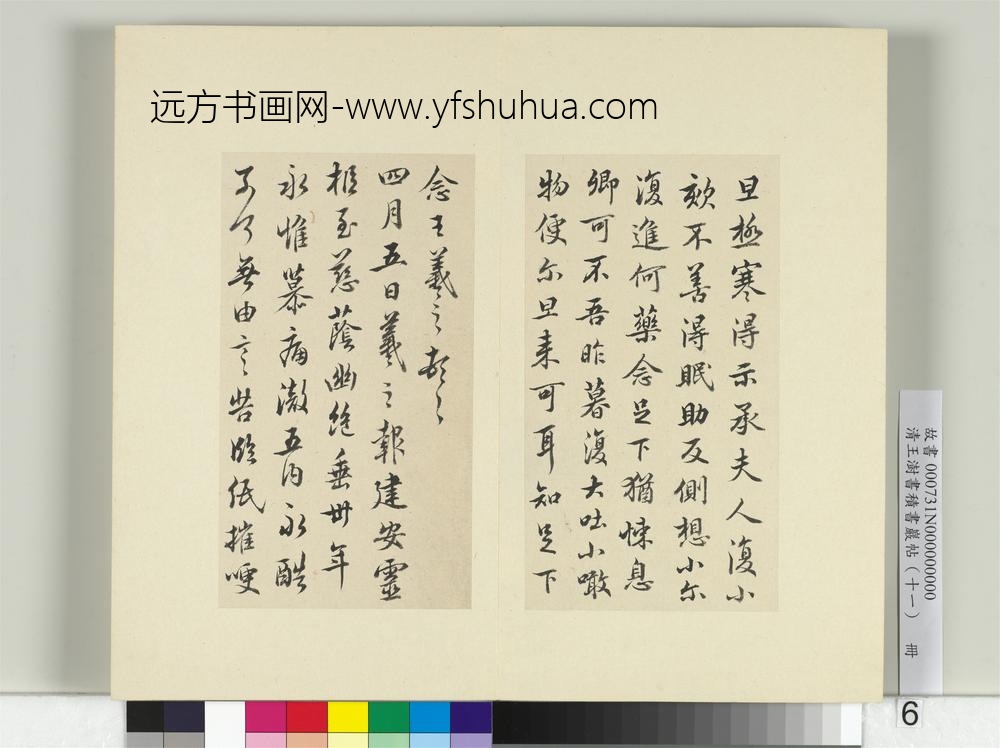 远方书画网-www.yfshuhua.com
旦極寒得示承夫人復小
欬不善得眠助反側想小尔
復進何藥念足下猶悚息
卿可不吾昨暮復大吐小噉
物便尔旦来可耳知足下
念王羲之頓〻
四月五日羲之報建安靈
柩至慈蔭幽絕垂卅年
永惟慕痛澈五内永酷
奈何無由言告臨紙摧哽
故書 000731N000000000
清王澍書積書巖帖(十一) 冊
6